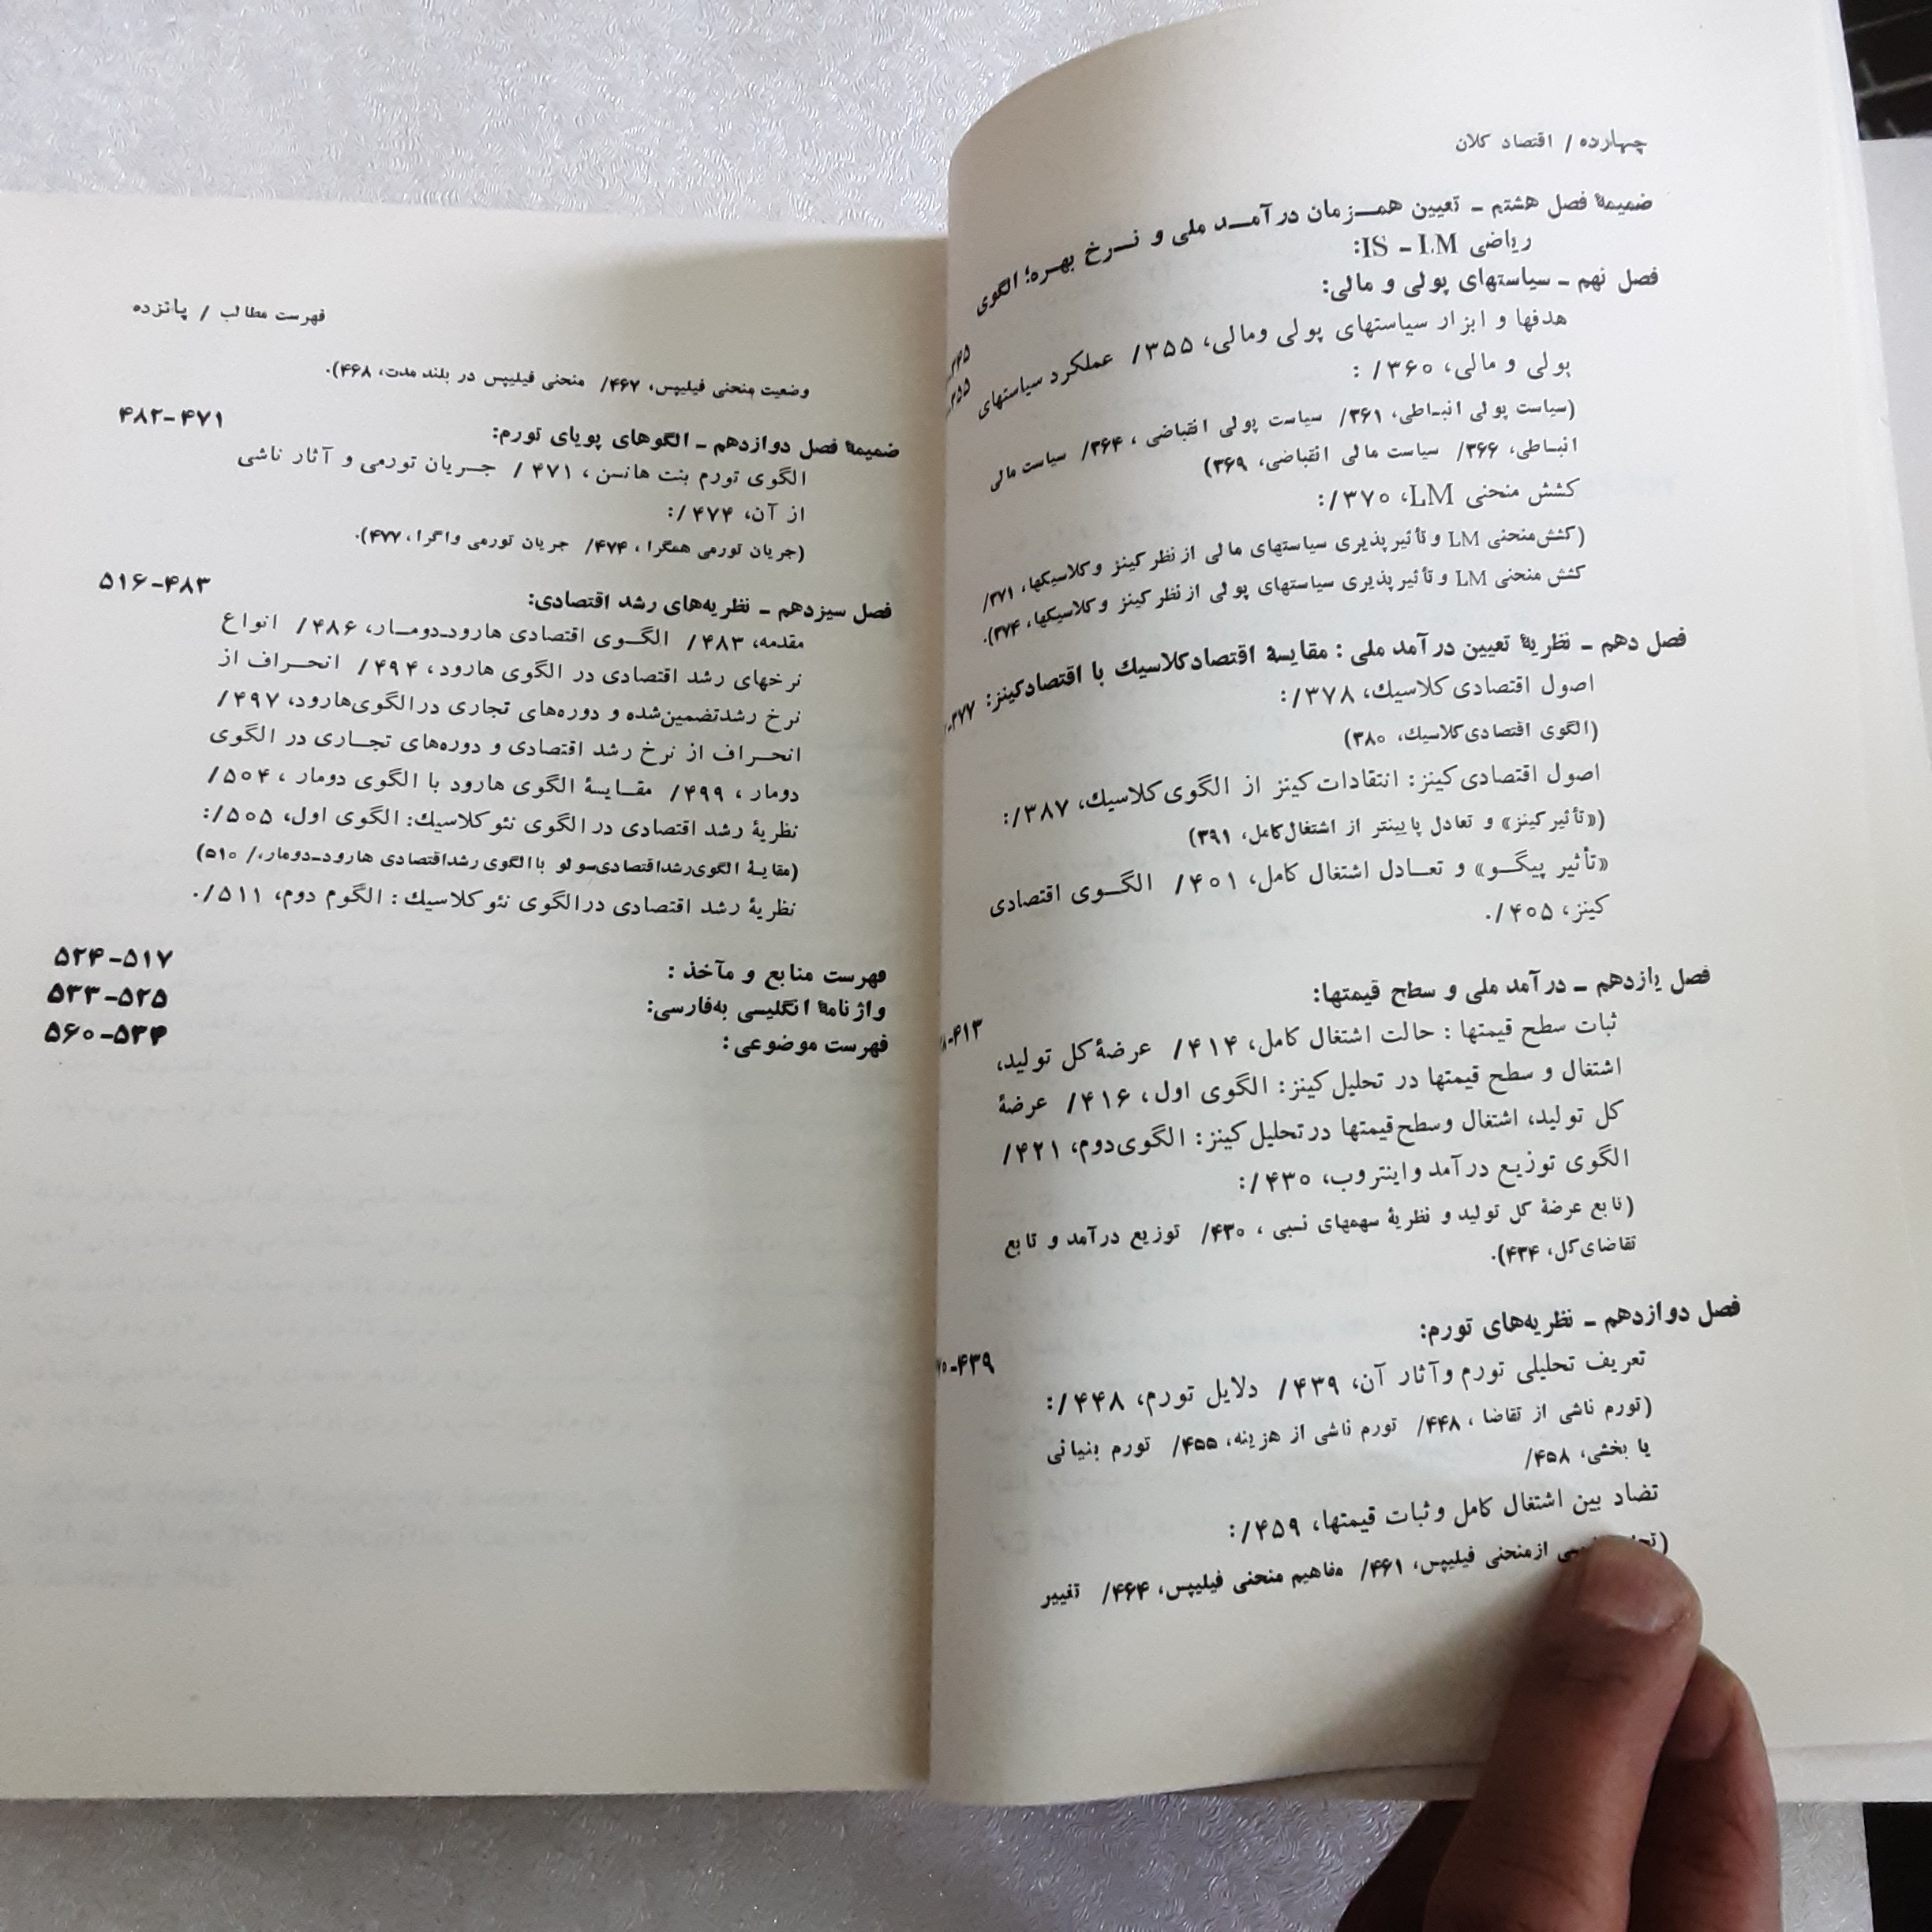 چهارده / اقتصاد کلان
ضمیمهٔ فصل هشتم ـ تعیین همـزمان درآمـد ملی و نـرخ بهـره؛ الگوی
ریاضی IS - LM:
۳۴۵ـ
فصل نهم ـ سیاستهای پولی و مالی:
۳۵۵ـ
هدفها و ابزار سیاستهای پولی ومالی، ۳۵۵/ عملکرد سیاستهای
پولی و مالی، ۳۶۰/ :
(سیاست پولی انبـاطی، ۳۶۱/ سیاست پولی انقباضی ، ۳۶۴/ سیاست مالی
انبـاطی، ۳۶۶/ سیاست مالی انقباضی، ۳۶۹)
کشش منحنی LM، ۳۷۰/:
(کشش‌منحنی LM و تأثیرپذیری سیاستهای مالی از نظر کینز و کلاسیکها، ۳۷۱/
کشش منحنی LM و تأثیرپذیری سیاستهای پولی از نظر کینز و کلاسیکها، ۳۷۴).
فصل دهم ـ نظریهٔ تعیین درآمد ملی : مقایسهٔ اقتصادکلاسیك با اقتصادکینز: ۳۷۷ـ
اصول اقتصادی کلاسیك، ۳۷۸/:
(الگوی اقتصادی کلاسیك، ۳۸۰)
اصول اقتصادی کینز: انتقادات کینز از الگوی کلاسیك، ۳۸۷/:
(«تأثیر کینز» و تعادل پایینتر از اشتغال کامل، ۳۹۱)
«تأثیر پیگـو» و تعـادل اشتغال کامل، ۴۰۱/ الگـوی اقتصادی
کینز، ۴۰۵/.
فصل یازدهم ـ درآمد ملی و سطح قیمتها:
۴۱۳ـ
ثبات سطح قیمتها : حالت اشتغال کامل، ۴۱۴/ عرضهٔ کل تولید،
اشتغال و سطح قیمتها در تحلیل کینز: الگوی اول، ۴۱۶/ عرضهٔ
کل تولید، اشتغال وسطح قیمتها درتحلیل کینز: الگوی دوم، ۴۲۱/
الگوی توزیع درآمد واینتروب، ۴۳۰/:
(تابع عرضهٔ کل تولید و نظریهٔ سهمهای نسبی ، ۴۳۰/ توزیع درآمد و تابع
تقاضای کل، ۴۳۴).
فصل دوازدهم ـ نظریه‌های تورم:
۴۳۹ـ
تعریف تحلیلی تورم وآثار آن، ۴۳۹/ دلایل تورم، ۴۴۸/:
(تورم ناشی از تقاضا ، ۴۴۸/ تورم ناشی از هزینه، ۴۵۵/ تورم بنیانی
یا بخشی، ۴۵۸/
تضاد بین اشتغال کامل و ثبات قیمتها، ۴۵۹/:
ازمنحنی فیلیپس، ۴۶۱/ مفاهیم منحنی فیلیپس، ۴۶۴/ تغییر
فهرست مطالب / پانزده
وضعیت منحنی فیلیپس، ۴۶۷/ منحنی فیلیپس در بلند مدت، ۴۶۸).
ضمیمهٔ فصل دوازدهم ـ الگوهای پویای تورم: ۴۷۱-۴۸۲
الگوی تورم بنت هانسن ، ۴۷۱ / جـریان تورمی و آثار ناشی
از آن، ۴۷۴ /:
(جریان تورمی همگرا ، ۴۷۴/ جریان تورمی واگرا ، ۴۷۷).
فصل سیزدهم ـ نظریه‌های رشد اقتصادی: ۴۸۳-۵۱۶
مقدمه، ۴۸۳/ الگـوی اقتصادی هارودـدومـار، ۴۸۶/ انواع
نرخهای رشد اقتصادی در الگوی هارود ، ۴۹۴/ انحـراف از
نرخ رشدتضمین‌شده و دوره‌های تجاری درالگوی‌هارود، ۴۹۷/
انحـراف از نرخ رشد اقتصادی و دوره‌های تجـاری در الگوی
دومار ، ۴۹۹/ مقـایسهٔ الگوی هارود با الگوی دومار ، ۵۰۴/
نظریهٔ رشد اقتصادی در الگوی نئوکلاسیك: الگوی اول، ۵۰۵/:
(مقایـهٔ الگوی‌رشداقتصادی‌سولو با الگوی رشداقتصادی هارودـدومار،/ ۵۱۰)
نظریهٔ رشد اقتصادی درالگوی نئوکلاسیك : الگوم دوم، ۵۱۱/.
فهرست منابع و مآخذ : ۵۱۷-۵۲۴
واژنامهٔ انگلیسی به‌فارسی: ۵۲۵-۵۳۳
فهرست موضوعی : ۵۳۴-۵۶۰